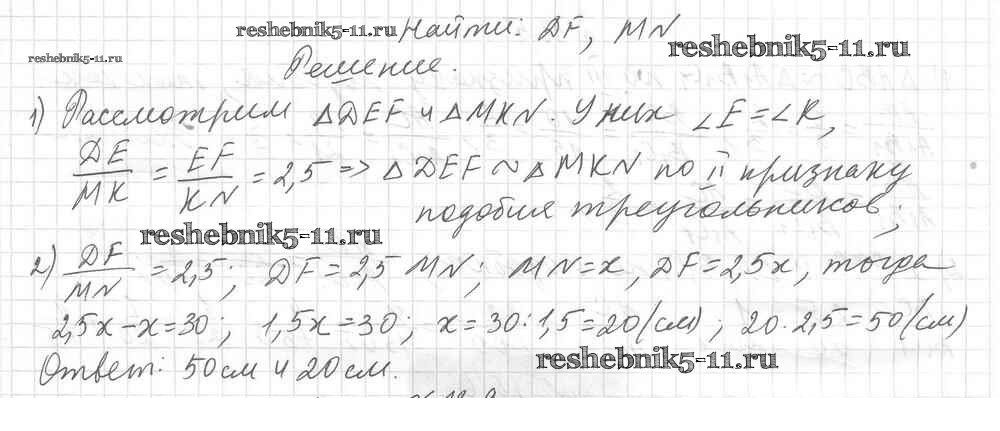 reshebnik5-11.ru Найти: DF, MN
reshebnik5-11.ru
reshebnik5-11.ru
Решение.
1) Рассмотрим △DEF и △MKN. У них ∠E=∠K,
DE/MK = EF/KN = 2,5 => △DEF ~ △MKN по II признаку
подобия треугольников;
reshebnik5-11.ru
2) DF/MN = 2,5; DF = 2,5 MN; MN=x, DF=2,5x, тогда
2,5x-x=30; 1,5x=30; x=30:1,5=20(см); 20·2,5=50(см)
reshebnik5-11.ru
Ответ: 50см и 20см.